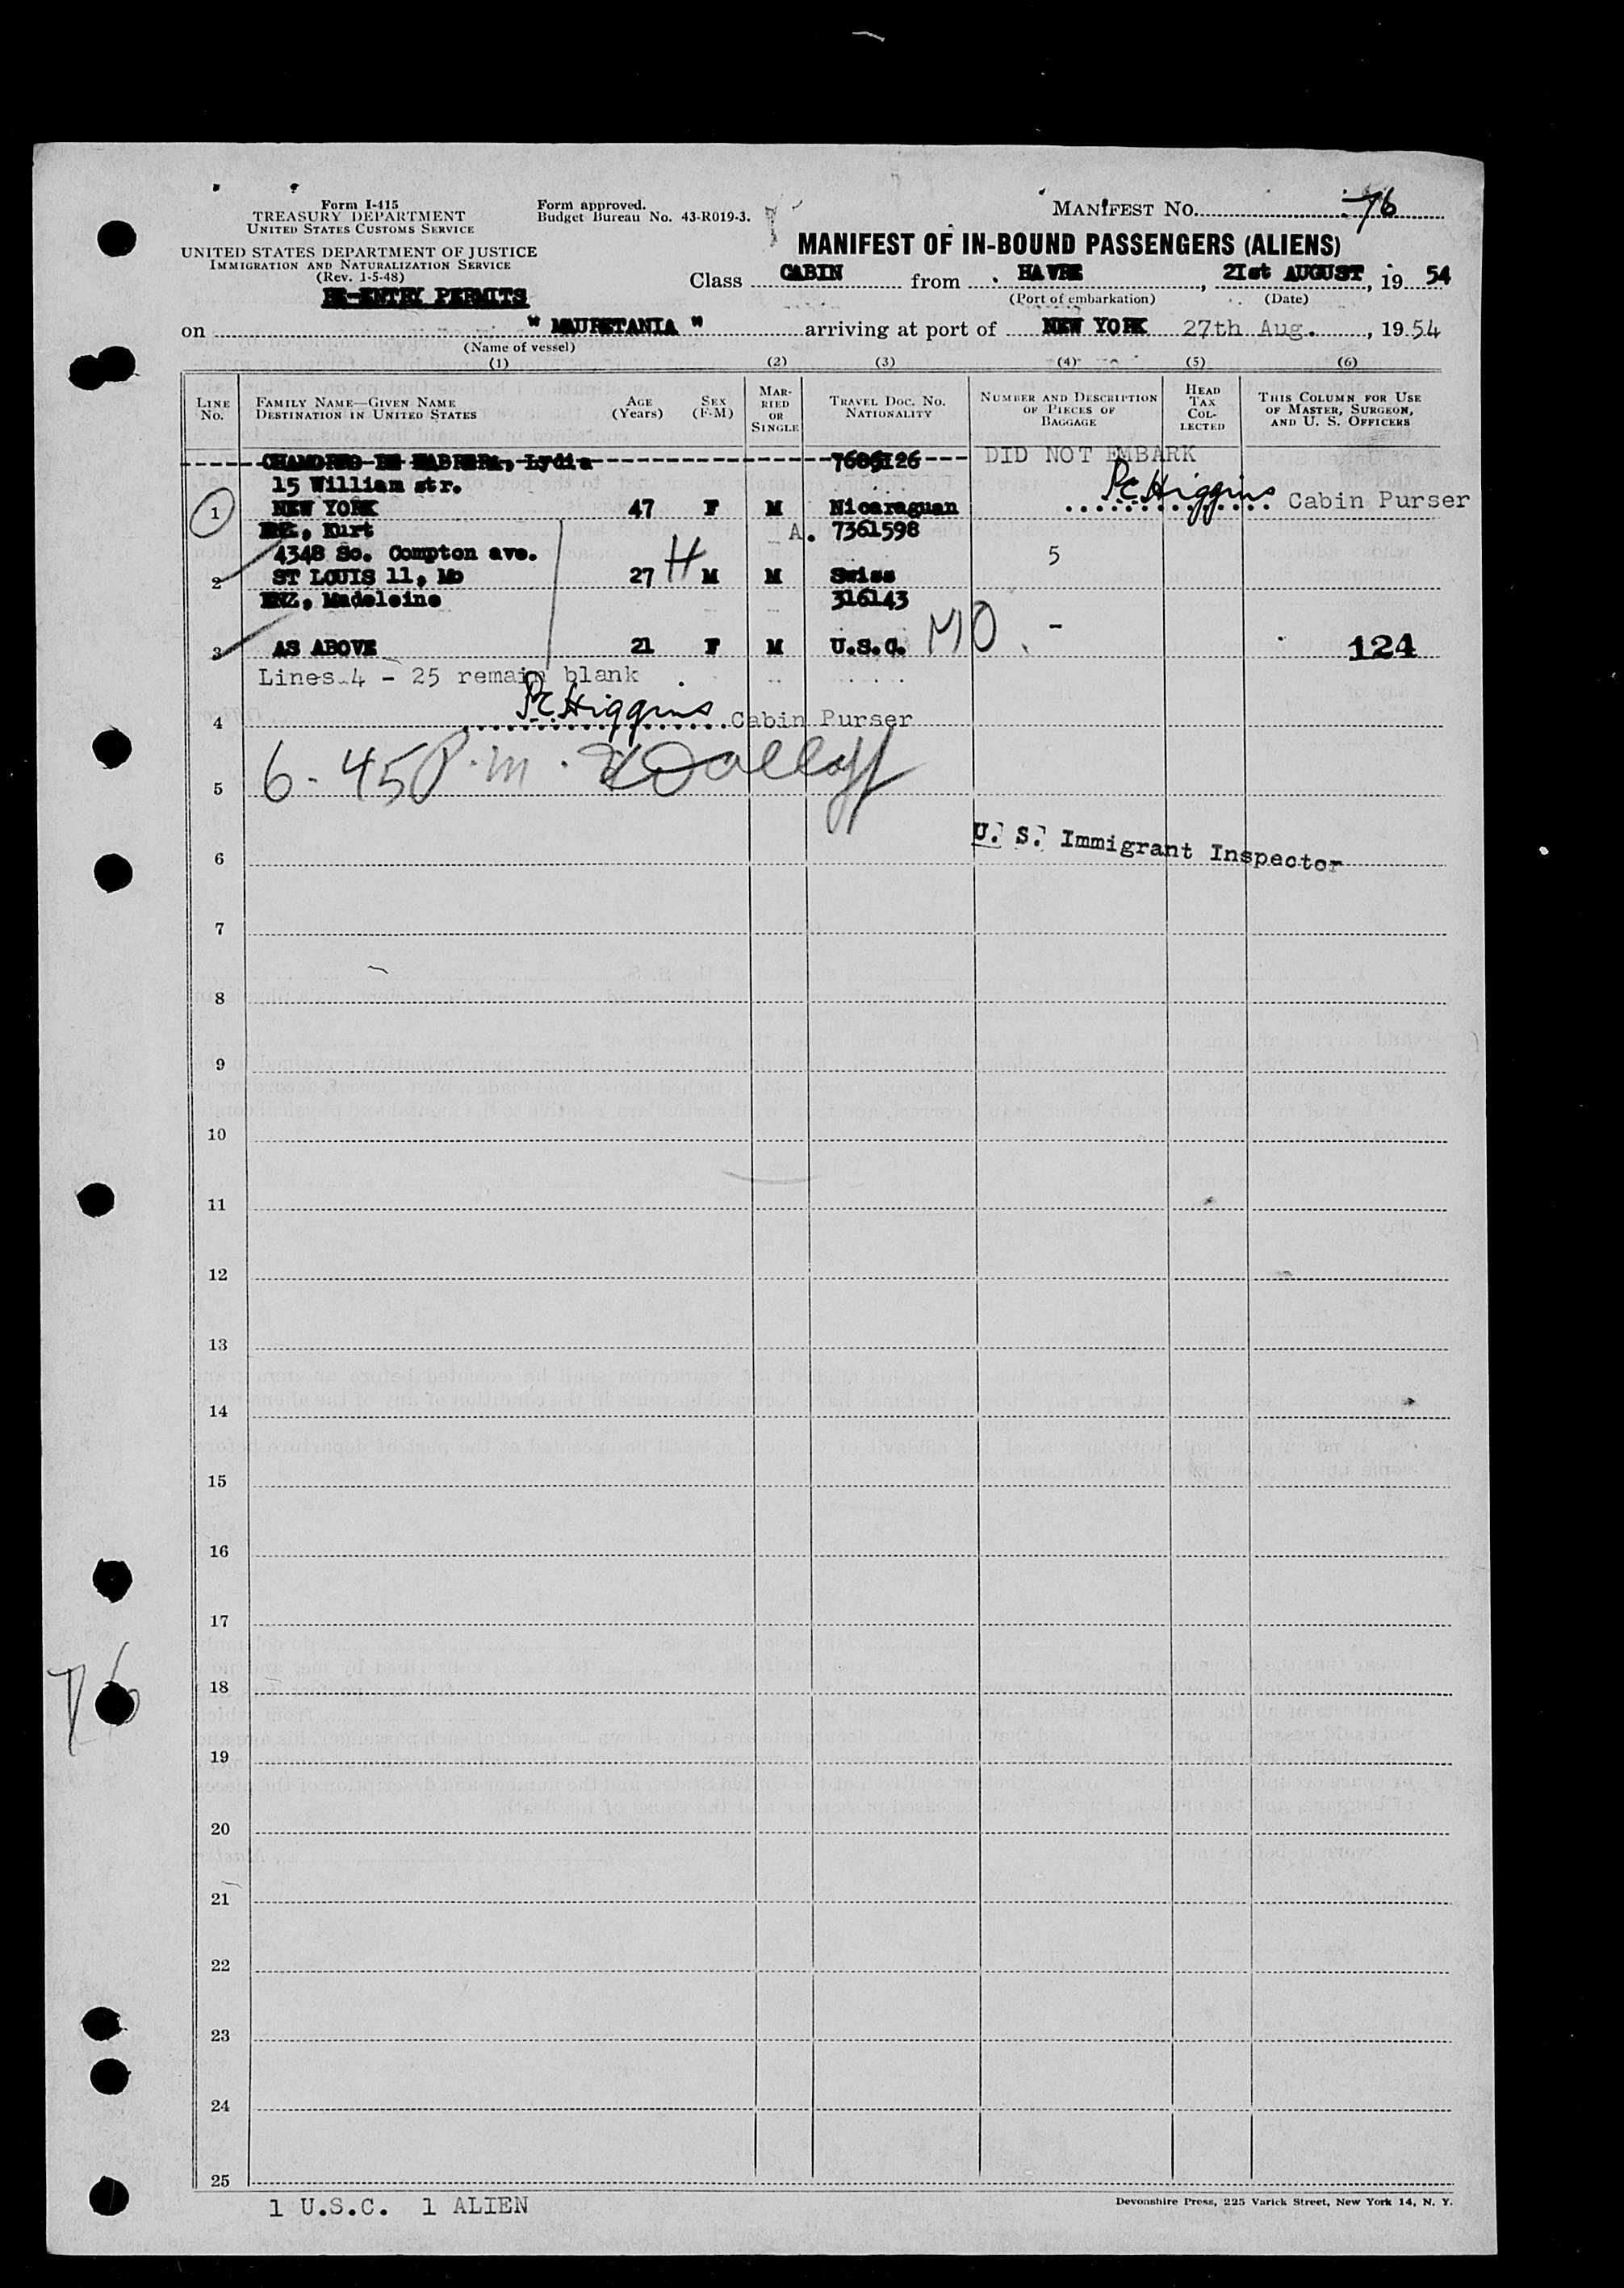 Form I-415
TREASURY DEPARTMENT
UNITED STATES CUSTOMS SERVICE
UNITED STATES DEPARTMENT OF JUSTICE
IMMIGRATION AND NATURALIZATION SERVICE
(Rev. 1-5-48)
RE-ENTRY PERMITS
Form approved.
Budget Bureau No. 43-R019-3.
MANIFEST NO. 76
MANIFEST OF IN-BOUND PASSENGERS (ALIENS)
Class CABIN from HAVRE, 21st AUGUST, 19 54
(Port of embarkation) (Date)
on " MAURETANIA " arriving at port of NEW YORK 27th Aug., 19 54
(Name of vessel)
(1) (2) (3) (4) (5) (6)
LINE NO. FAMILY NAME—GIVEN NAME DESTINATION IN UNITED STATES AGE (Years) SEX (F-M) MARRIED OR SINGLE TRAVEL DOC. NO. NATIONALITY NUMBER AND DESCRIPTION OF PIECES OF BAGGAGE HEAD TAX COLLECTED THIS COLUMN FOR USE OF MASTER, SURGEON, AND U. S. OFFICERS
Lydia DID NOT EMBARK
15 William str.
1 NEW YORK 47 F M Nicaraguan P.C. Higgins Cabin Purser
ENZ, Kurt A. 7361598
4348 So. Compton ave. 5
2 ST LOUIS 11, Mo 27 H M M Swiss
ENZ, Madeleine 316143
3 AS ABOVE 21 F M U.S.C. MO - 124
Lines 4 - 25 remain blank
4 P.C. Higgins Cabin Purser
5 6-45 P.m.
U. S. Immigrant Inspector
6
7
8
9
10
11
12
13
14
15
16
17
18
76
19
20
21
22
23
24
25
1 U.S.C. 1 ALIEN
Devonshire Press, 225 Varick Street, New York 14, N. Y.